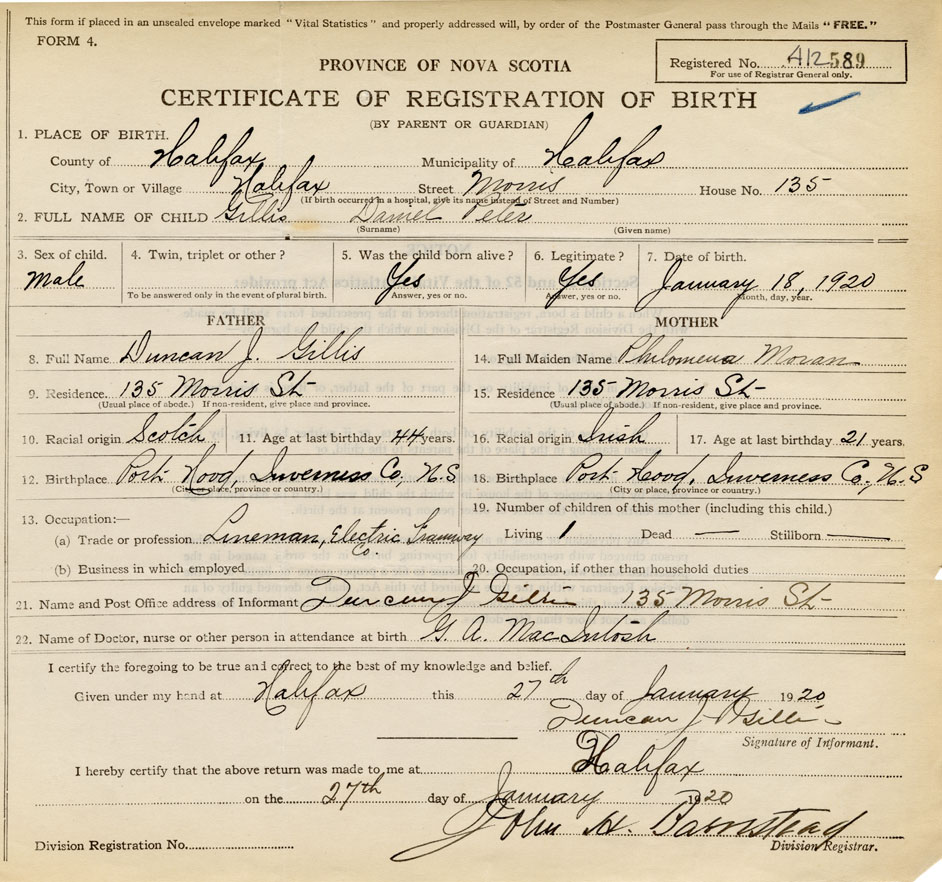 This form if placed in an unsealed envelope marked "Vital Statistics" and properly addressed will, by order of the Postmaster General pass through the Mails "FREE."
FORM 4.
Registered No. A12589
For use of Registrar General only.
PROVINCE OF NOVA SCOTIA
CERTIFICATE OF REGISTRATION OF BIRTH
(BY PARENT OR GUARDIAN)
1. PLACE OF BIRTH.
County of Halifax Municipality of Halifax
City, Town or Village Halifax Street Morris House No. 135
(If birth occurred in a hospital, give its name instead of Street and Number)
2. FULL NAME OF CHILD Gillis Daniel Peter
(Surname) (Given name)
3. Sex of child. 4. Twin, triplet or other? 5. Was the child born alive? 6. Legitimate? 7. Date of birth.
Male Yes Yes January 18, 1920
To be answered only in the event of plural birth. Answer, yes or no. Answer, yes or no. Month, day, year.
FATHER MOTHER
8. Full Name Duncan J. Gillis 14. Full Maiden Name Philomena Moran
9. Residence. 135 Morris St 15. Residence 135 Morris St
(Usual place of abode.) If non-resident, give place and province. (Usual place of abode.) If non-resident, give place and province.
10. Racial origin Scotch 11. Age at last birthday 44 years. 16. Racial origin Irish 17. Age at last birthday 21 years.
12. Birthplace Port Hood, Inverness Co, N.S 18. Birthplace Port Hood, Inverness Co, N.S
(City or place, province or country.) (City or place, province or country.)
13. Occupation:— 19. Number of children of this mother (including this child.)
(a) Trade or profession Lineman, Electric Tramway Co. Living 1 Dead — Stillborn —
(b) Business in which employed 20. Occupation, if other than household duties
21. Name and Post Office address of Informant Duncan J Gillis 135 Morris St
22. Name of Doctor, nurse or other person in attendance at birth G. A. MacIntosh
I certify the foregoing to be true and correct to the best of my knowledge and belief.
Given under my hand at Halifax this 27th day of January 1920
Duncan J Gillis
Signature of Informant.
I hereby certify that the above return was made to me at Halifax
on the 27th day of January 1920
John H. Barnstead
Division Registration No. Division Registrar.